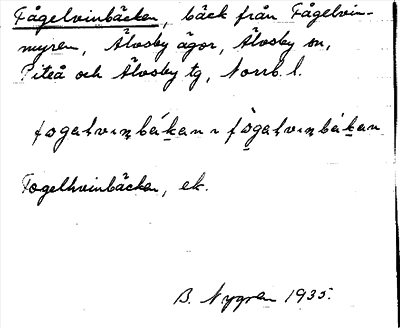 Fågelvinbäcken, bäck från Fågelvin-
myren, Älvsby ägor, Älvsby sn,
Piteå och Älvsby tg, Norrb. l.
fogalvinbäkan ~ fogalvinbäkan
Fogelhvinbäcken, ek.
B. Nygren 1935.